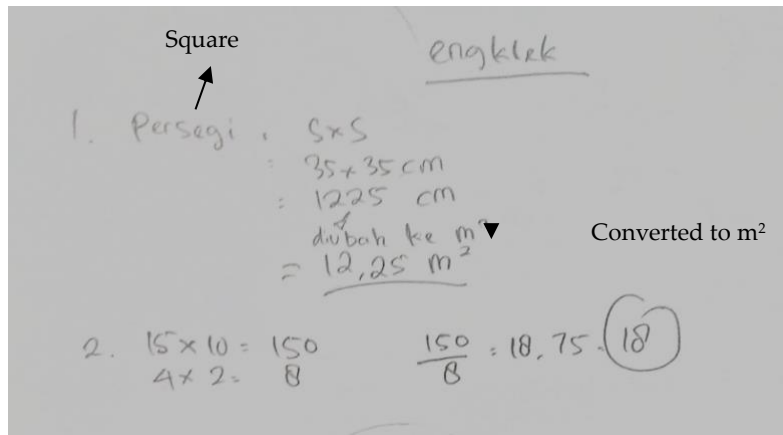 Square
engklek
1. Persegi : S×S
: 35×35 cm
: 1225 cm
diubah ke m²
Converted to m²
= 12,25 m²
2. 15×10 = 150
4×2= 8
150/8 = 18,75. 18